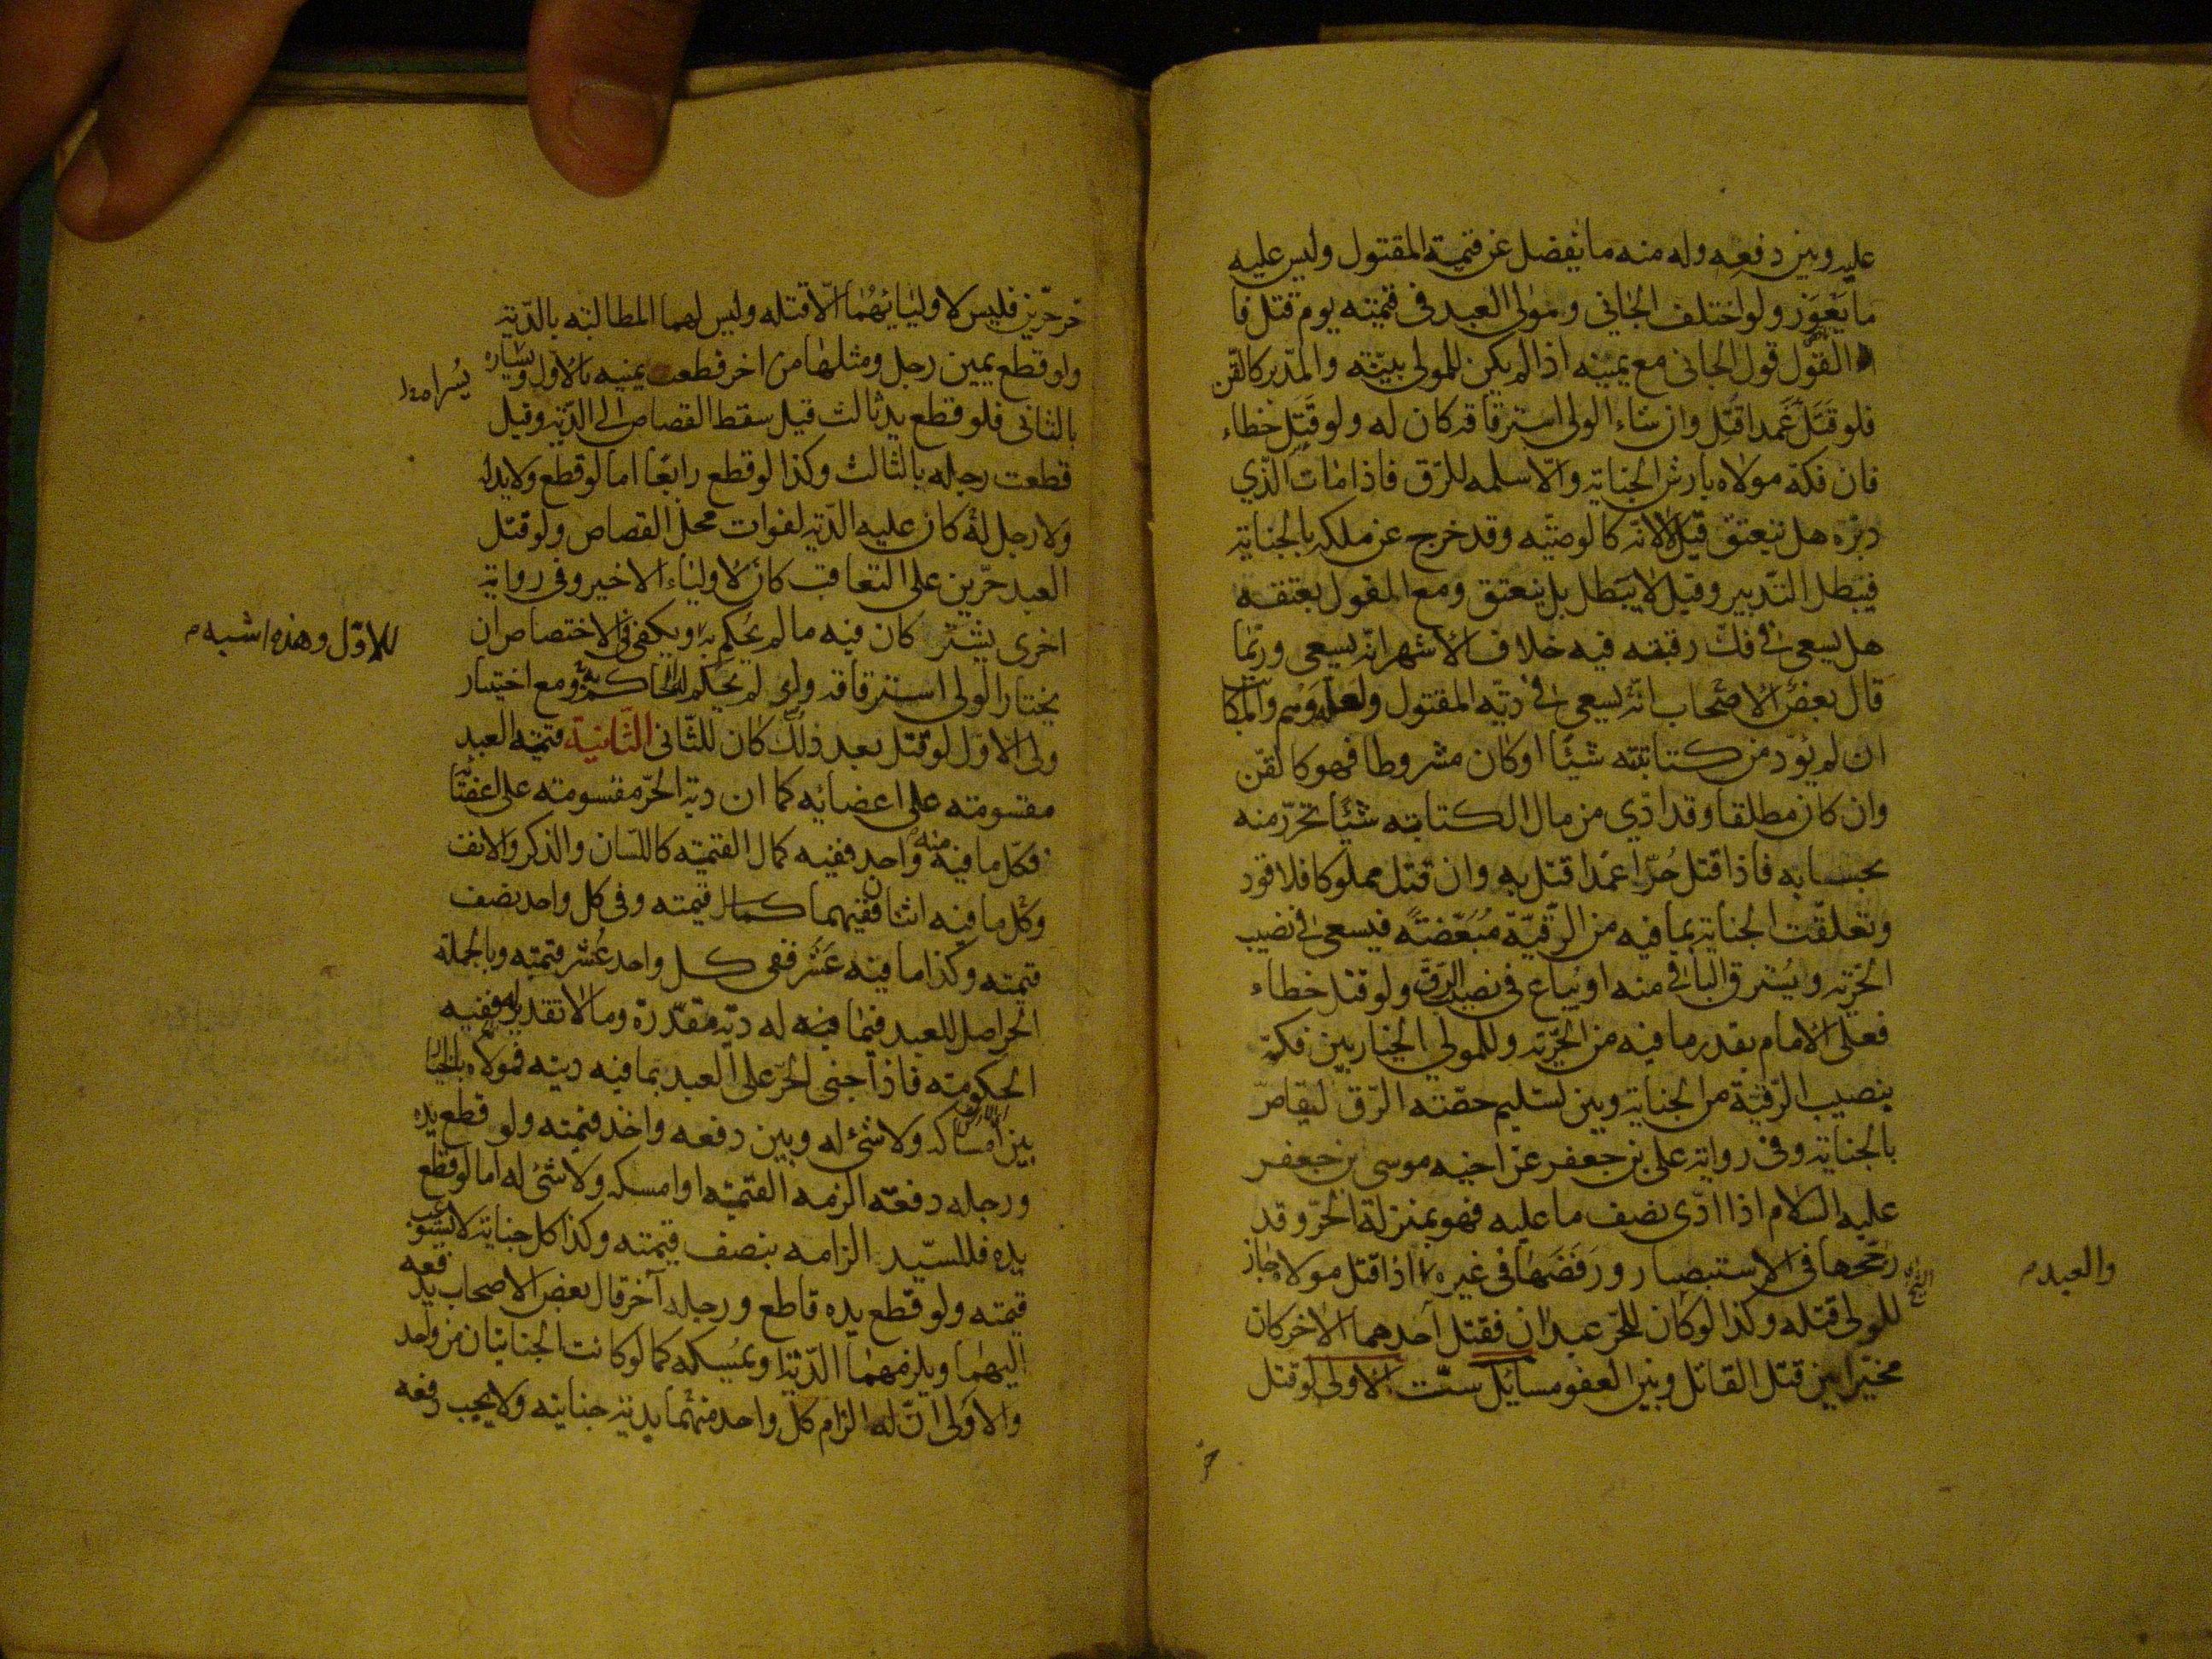 عليه وبين دفعه وله منه ما يفضل عن قيمة المقتول وليس عليه
ما يعوز ولو اختلف الجاني ومولى العبد في قيمته يوم قتل فا
القول قول الجاني مع يمينه اذا لم يكن للمولى بينة والمدبر كالقن
فلو قتل عمدا قتل وان شاء الولي استرقاقه كان له ولو قتل خطاء
فان فكه مولاه بارش الجناية والا سلمه للرق فاذا مات الذي
دبره هل ينعتق قيل لا لانه كالوصية وقد خرج عن ملكه بالجناية
فيبطل التدبير وقيل لا يبطل بل ينعتق ومع القول بعتقه
هل يسعى في فك رقبته فيه خلاف الاشهر انه يسعى وربما
قال بعض الاصحاب انه يسعى في دية المقتول ولعله وهم والمكا
ان لم يؤد من كتابته شيئا او كان مشروطا فهو كالقن
وان كان مطلقا وقد ادى من مال الكتابة شيئا تحرر منه
بحسابه فاذا قتل حرا عمدا قتل به وان قتل مملوكا فلا قود
وتعلقت الجناية بما فيه من الرقية مبعضة فيسعى في نصيب
الحرية ويسترق الباقي منه او يباع في نصيب الرق ولو قتل خطاء
فعلى الامام بقدر ما فيه من الحرية وللمولى الخيار بين فكه
بنصيب الرقية من الجناية وبين تسليم حصته الرق ليقاص
بالجناية وفي رواية علي بن جعفر عن اخيه موسى بن جعفر
عليه السلام اذا ادى نصف ما عليه فهو بمنزلة الحر وقد
رجحها في الاستبصار ورفضها في غيره اذا قتل مولاه جاز
الشيخ
والعبد م
للولي قتله وكذا لو كان للحر عبدان فقتل احدهما الاخر كان
مخيرا بين قتل القاتل وبين العفو مسايل ست الاولى لو قتل
حر
حر حرين فليس لاوليائهما الا قتله وليس لهما المطالبة بالدية
ولو قطع يمين رجل ومثلها من اخر قطعت يمينه بالاول ويساره
يسراه
بالثاني فلو قطع يد ثالث قيل سقط القصاص الى الدية وقيل
قطعت رجله بالثالث وكذا لو قطع رابعا اما لو قطع ولا يد له
ولا رجل له كان عليه الدية لفوات محل القصاص ولو قتل
العبد حرين على التعاقب كان لاولياء الاخير وفي رواية
اخرى يشتركان فيه ما لم يحكم به ويكفي في الاختصاص ان
للاول وهذه اشبه م
يختار الولي استرقاقه ولو لم يحكم له الحاكم به ومع اختيار
ولي الاول لو قتل بعد ذلك كان للثاني الثانية قيمة العبد
مقسومة على اعضائه كما ان دية الحر مقسومة على اعضائه
فكل ما فيه منه واحد ففيه كمال القيمة كاللسان والذكر والانف
وكل ما فيه اثنان ففيهما كمال قيمته وفي كل واحد نصف
قيمته وكذا ما فيه عشر ففي كل واحد عشر قيمته وبالجملة
الحر اصل للعبد فيما فيه له دية مقدرة وما لا تقدير له ففيه
الحكومة فاذا جنى الحر على العبد بما فيه ديته فمولاه بالخيار
بين امساكه ولا شيء له وبين دفعه واخذ قيمته ولو قطع يده
ورجله دفعة الزمه القيمة او امسكه ولا شيء له اما لو قطع
يده فللسيد الزامه بنصف قيمته وكذا كل جناية لا يستوعب
قيمته ولو قطع يده قاطع ورجله آخر قال بعض الاصحاب يدفعه
اليهما ويلزمهما الدية او يمسكه كما لو كانت الجنايتان من واحد
والاولى ان له الزام كل واحد منهما بدية جنايته ولا يجب دفعه